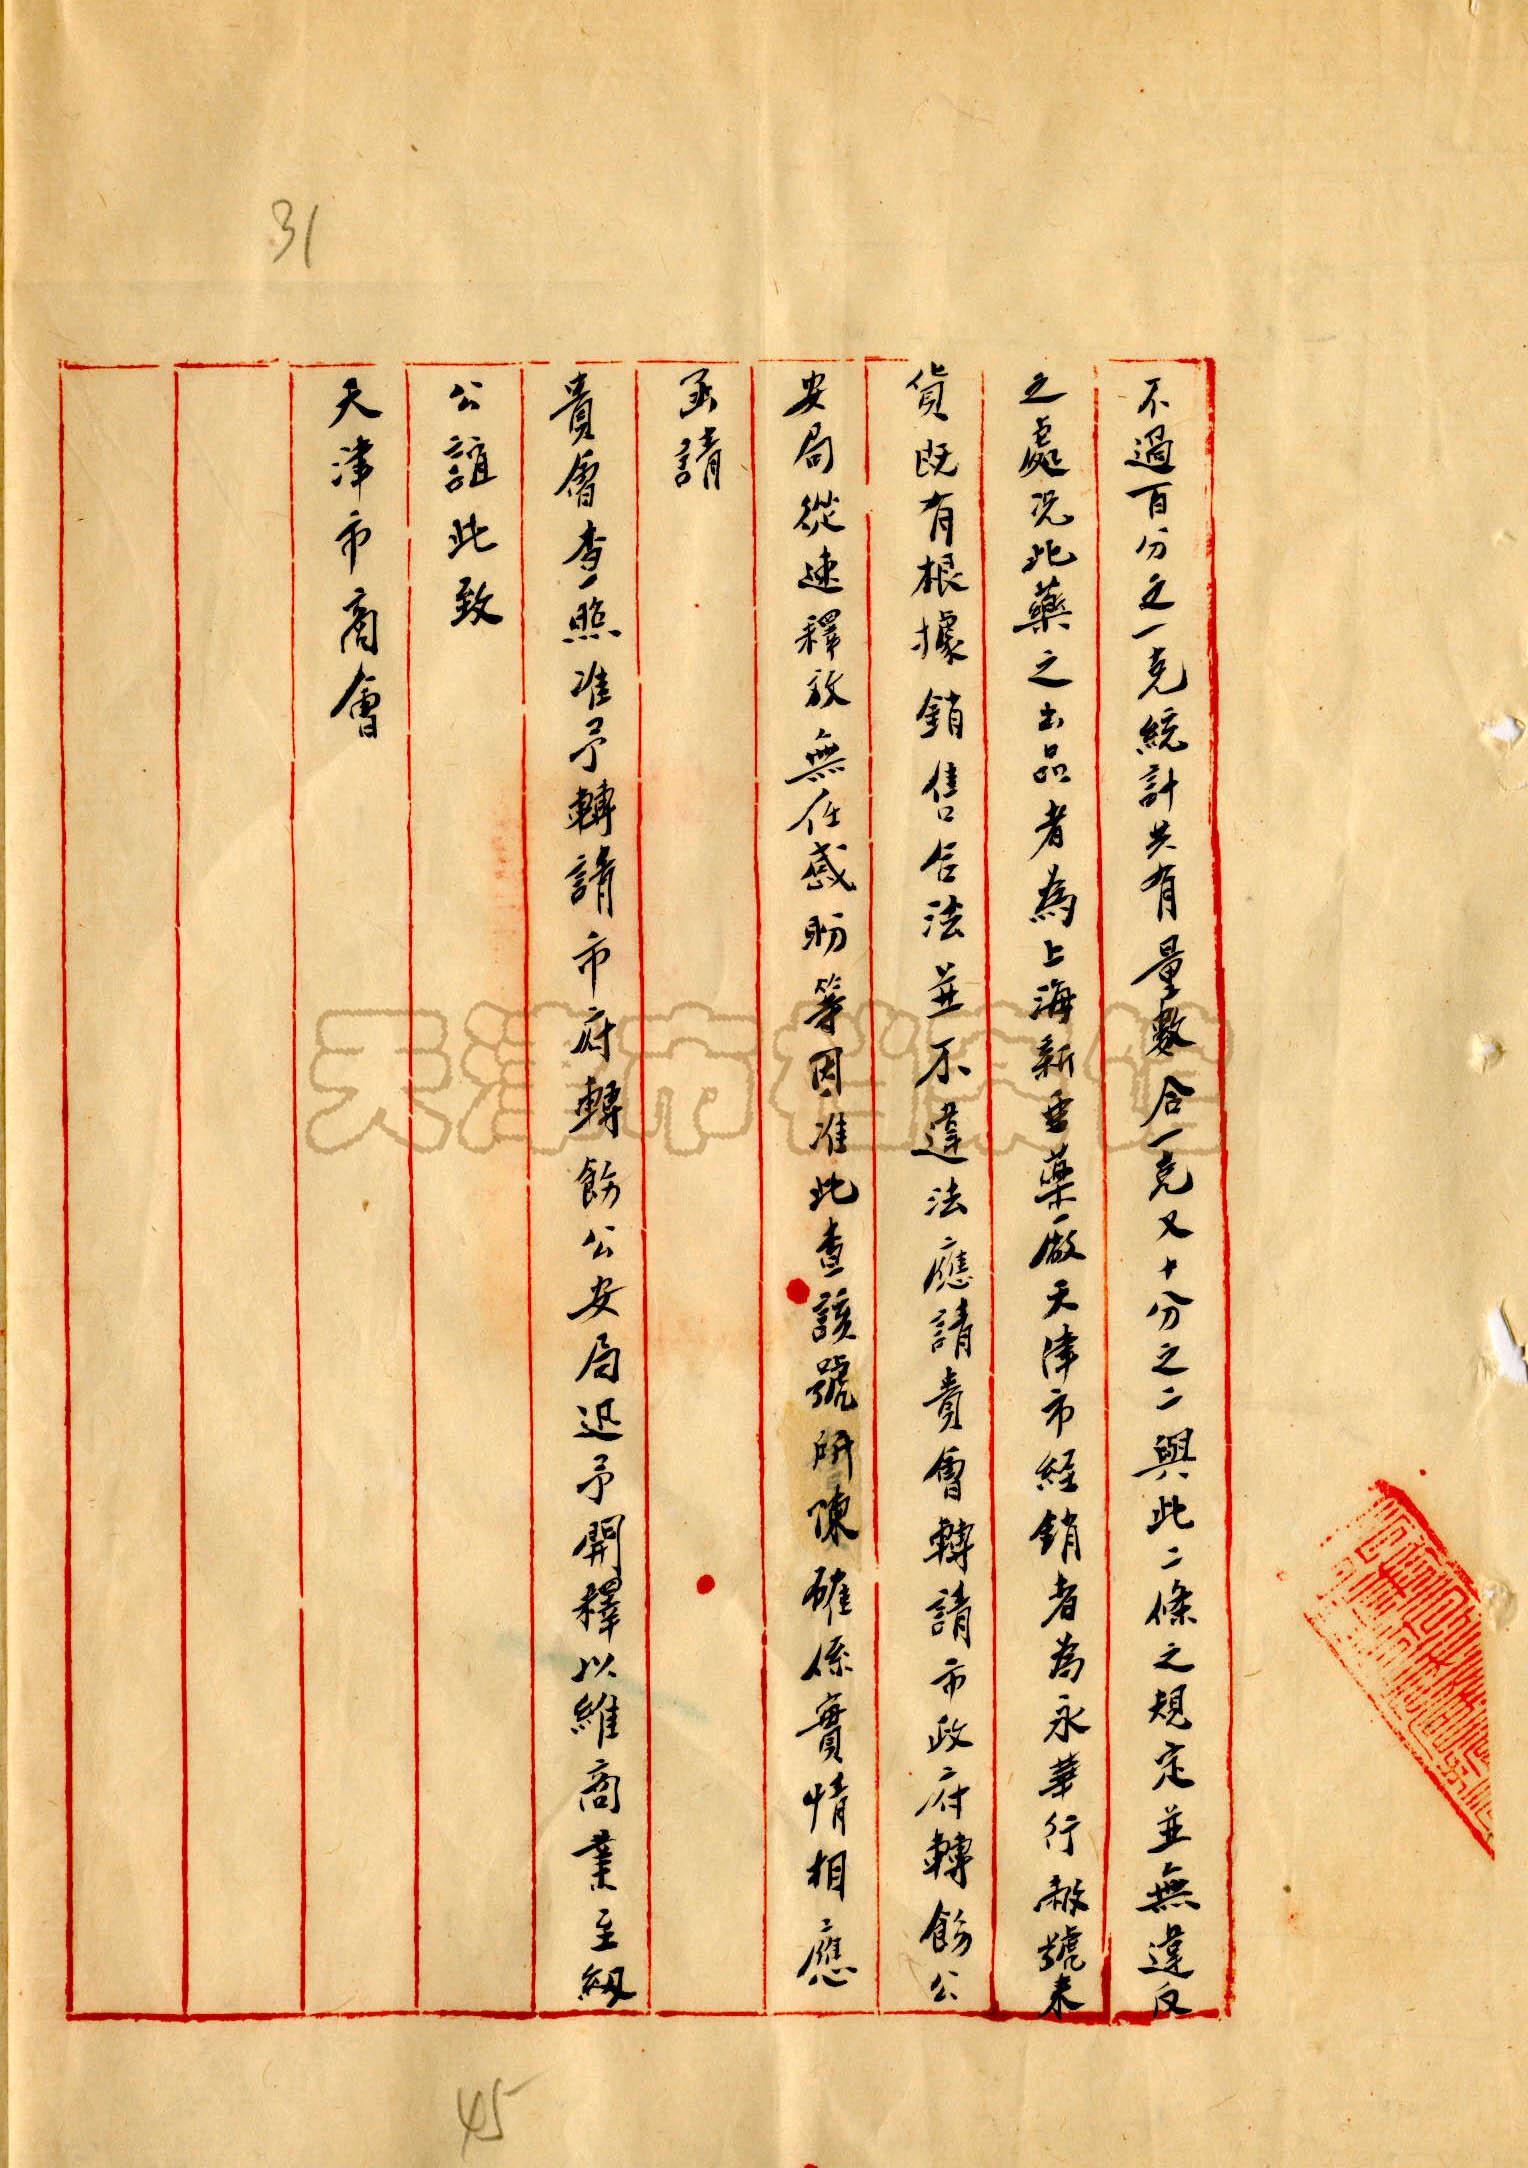 31
不過百分之一克統計共有量數合一克又十分之二與此二條之規定並無違反
之處況此藥之出品者為上海新亞藥廠天津市經銷者為永華行敝號來
貨既有根據銷售合法並不違法應請貴會轉請市政府轉飭公
安局從速釋放無任感盼等因准此查該號所陳確係實情相應
函請
貴會查照准予轉請市府轉飭公安局迅予開釋以維商業至紉
公誼此致
天津市商會
45
天津市档案馆